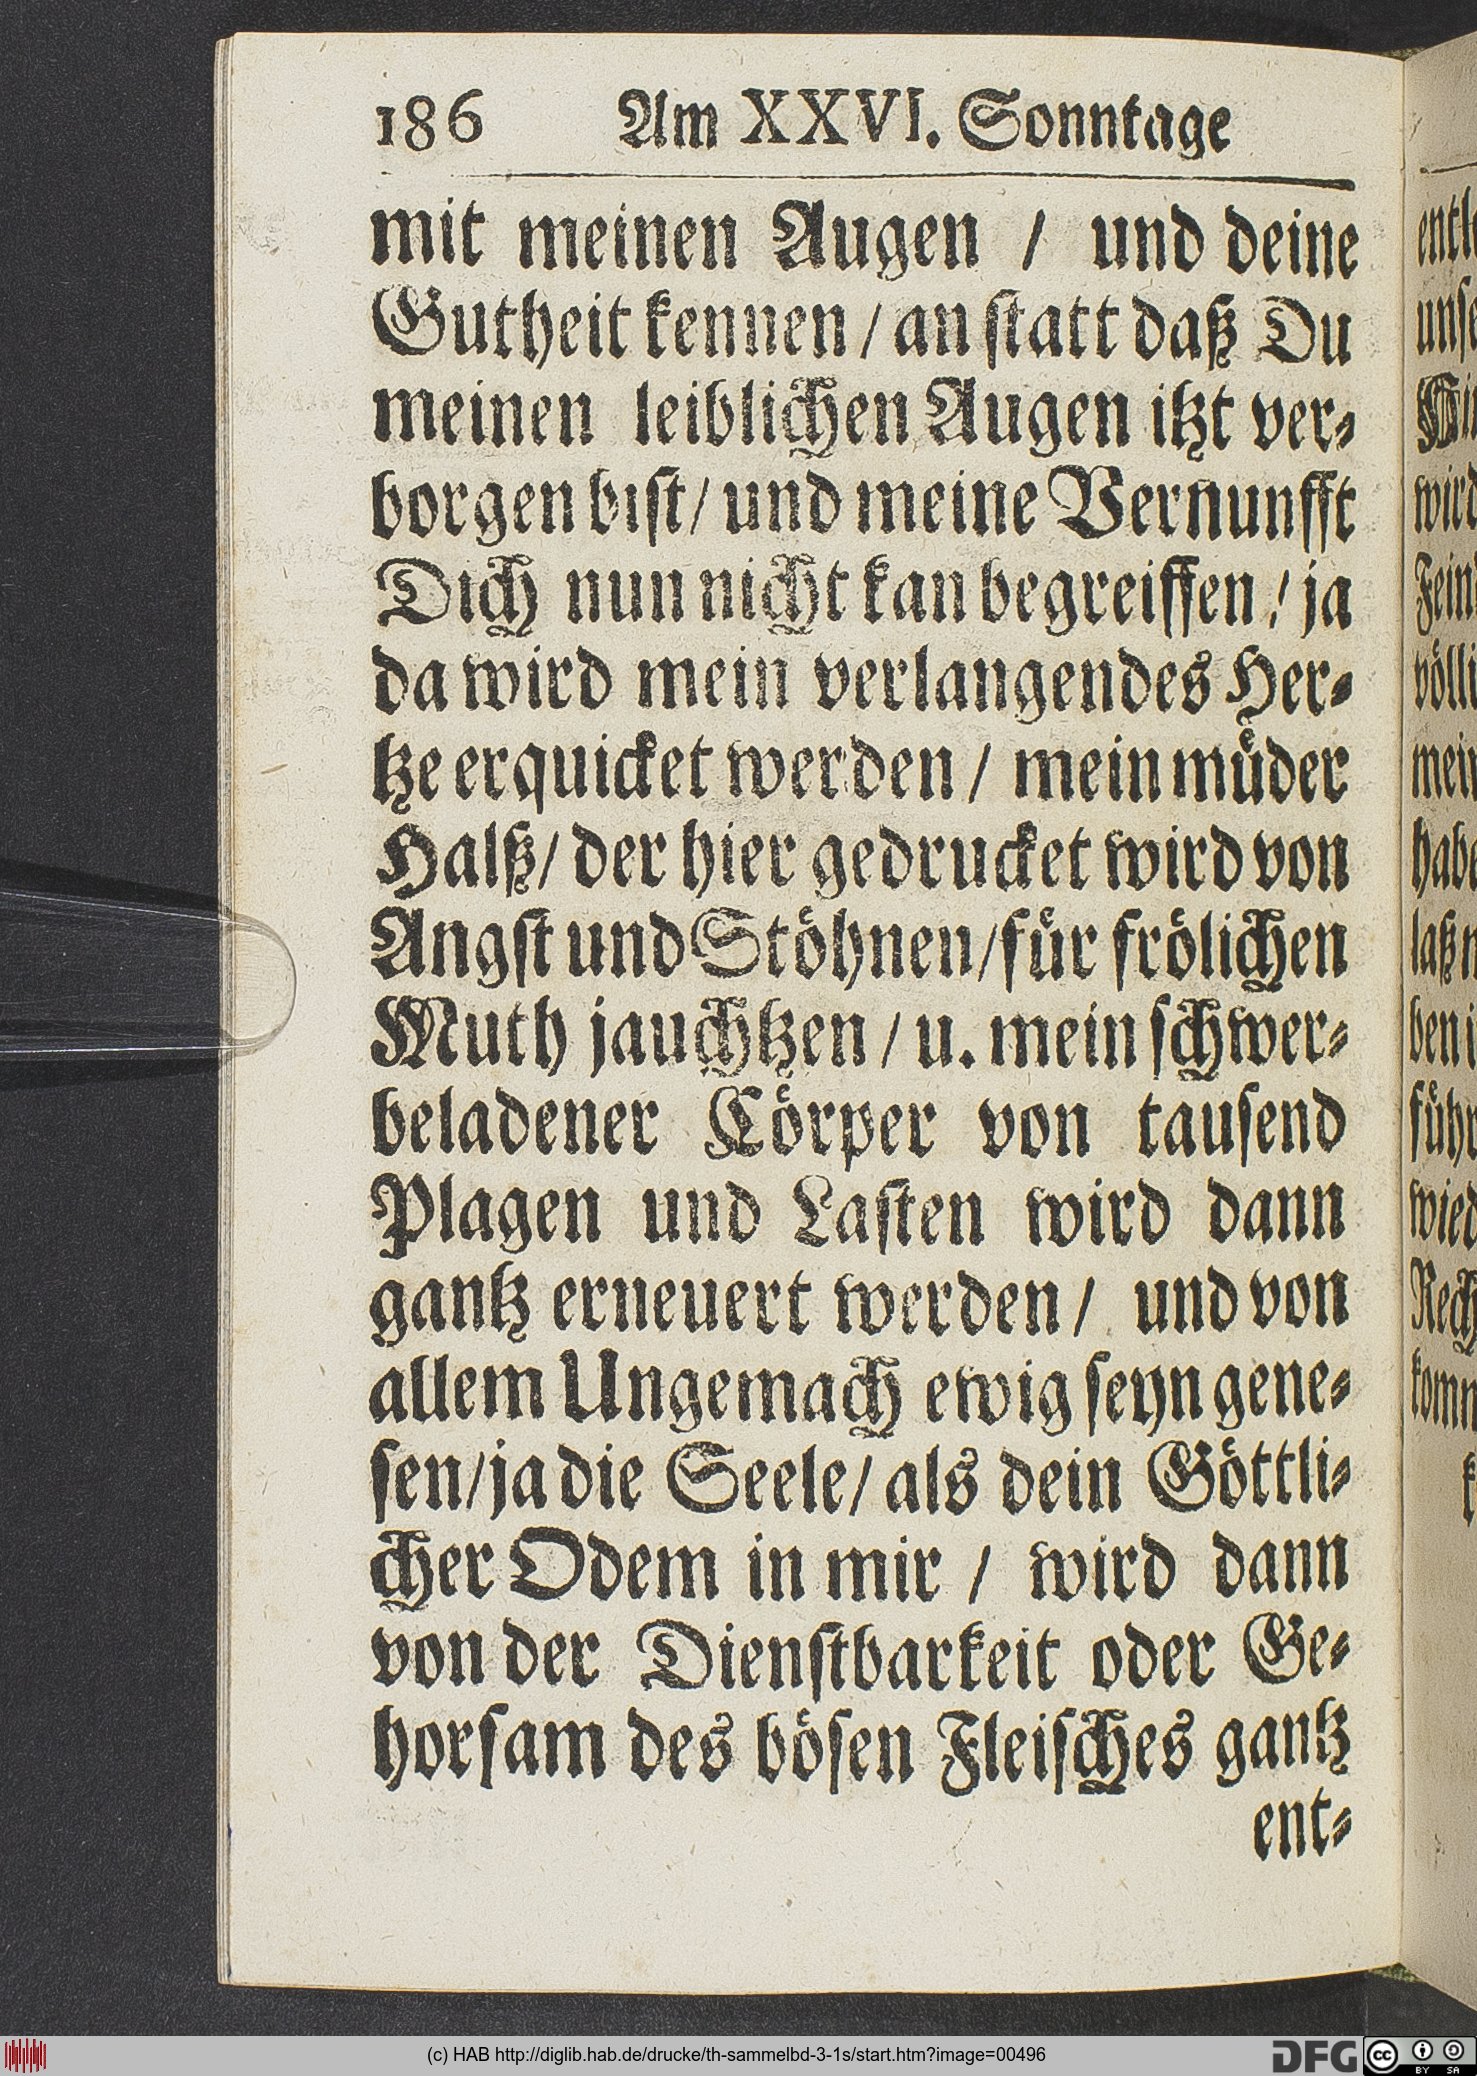 186 Am XXVI. Sonntage
mit meinen Augen / und deine
Gutheit kennen / an ſtatt daß Du
meinen leiblichen Augen itzt ver-
borgen biſt / und meine Vernunfft
Dich nun nicht kan begreiffen / ja
da wird mein verlangendes Her-
tze erquicket werden / mein muͤder
Halß / der hier gedrucket wird von
Angſt und Stoͤhnen / fuͤr froͤlichen
Muth jauchtzen / u. mein ſchwer-
beladener Coͤrper von tauſend
Plagen und Laſten wird dann
gantz erneuert werden / und von
allem Ungemach ewig ſeyn gene-
ſen / ja die Seele / als dein Goͤttli-
cher Odem in mir / wird dann
von der Dienſtbarkeit oder Ge-
horſam des boͤſen Fleiſches gantz
ent-
wird
(c) HAB http://diglib.hab.de/drucke/th-sammelbd-3-1s/start.htm?image=00496
DFG
cc BY SA